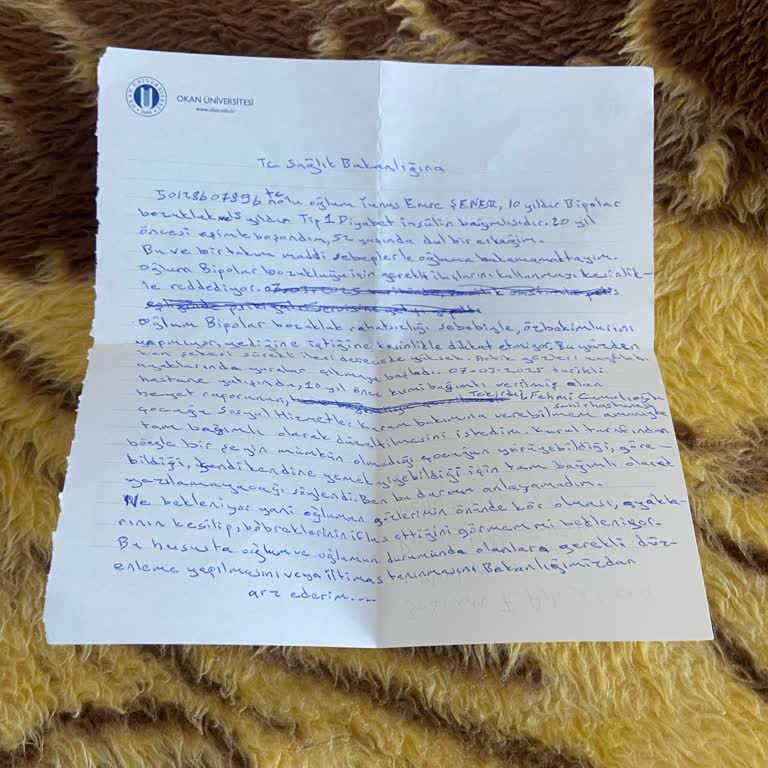 OKAN ÜNİVERSİTESİ
www.okan.edu.tr
Tc Sağlık Bakanlığına
50128607896 tc nolu oğlum Yunus Emre ŞENER, 10 yıldır Bipolar
bozukluk, yıldır Tip 1 Diyabet insülin bağımlısıdır. 20 yıl
öncesi eşimle boşandım, 52 yaşında dul bir erkeğim.
Bu ve bir takım maddi sebeplerle oğluma bakamamaktayım.
oğlum Bipolar bozukluğu için gerekli ilaçlarını kullanmayı kesinlik-
le reddediyor.
oğlum Bipolar bozukluk rahatsızlığı sebebiyle, özbakımlarını
yapmıyor, yediğine içtiğine kesinlikle dikkat etmiyor. Bu yüzden
kan şekeri sürekli ileri derecede yüksek. Artık gözleri
ayaklarında yaralar çıkmaya başladı. 07-03-2025 tarihli
hastane yatışında, 10 yıl önce kısmi bağımlı verilmiş olan
heyet raporunun, Tekirdağ Fehmi Cumalıoğlu
çocuğu Sosyal Hizmetler kurum bakımına verebilmem amacıyla
tam bağımlı olarak düzeltilmesini istedim. kurul tarafından
böyle bir şeyin mümkün olmadığı çocuğun yürüyebildiği, göre-
bildiği, kendi kendine yemek yiyebildiği için tam bağımlı olarak
yazılamayacağı söylendi. Ben bu durumu anlayamadım.
Ne bekleniyor yani oğlumun gözlerimin önünde kör olması, ayakla-
rının kesilip, böbreklerinin iflas ettiğini görmem mi bekleniyor.
Bu hususta oğlum ve oğlumun durumunda olanlara gerekli düz-
enleme yapılmasını veya iltimas tanınmasını Bakanlığımızdan
arz ederim....